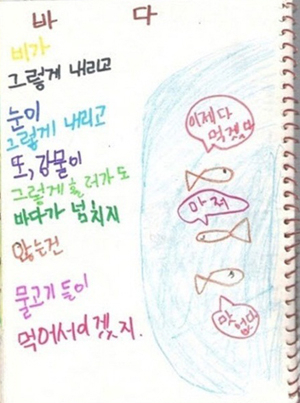 바 다
비가
그렇게 내리고
눈이
그렇게 내리고
또, 강물이
그렇게 흘러가도
바다가 넘치지
않는건
물고기들이
먹어서이겠지.
이제다
먹겠다
마저
맛없다